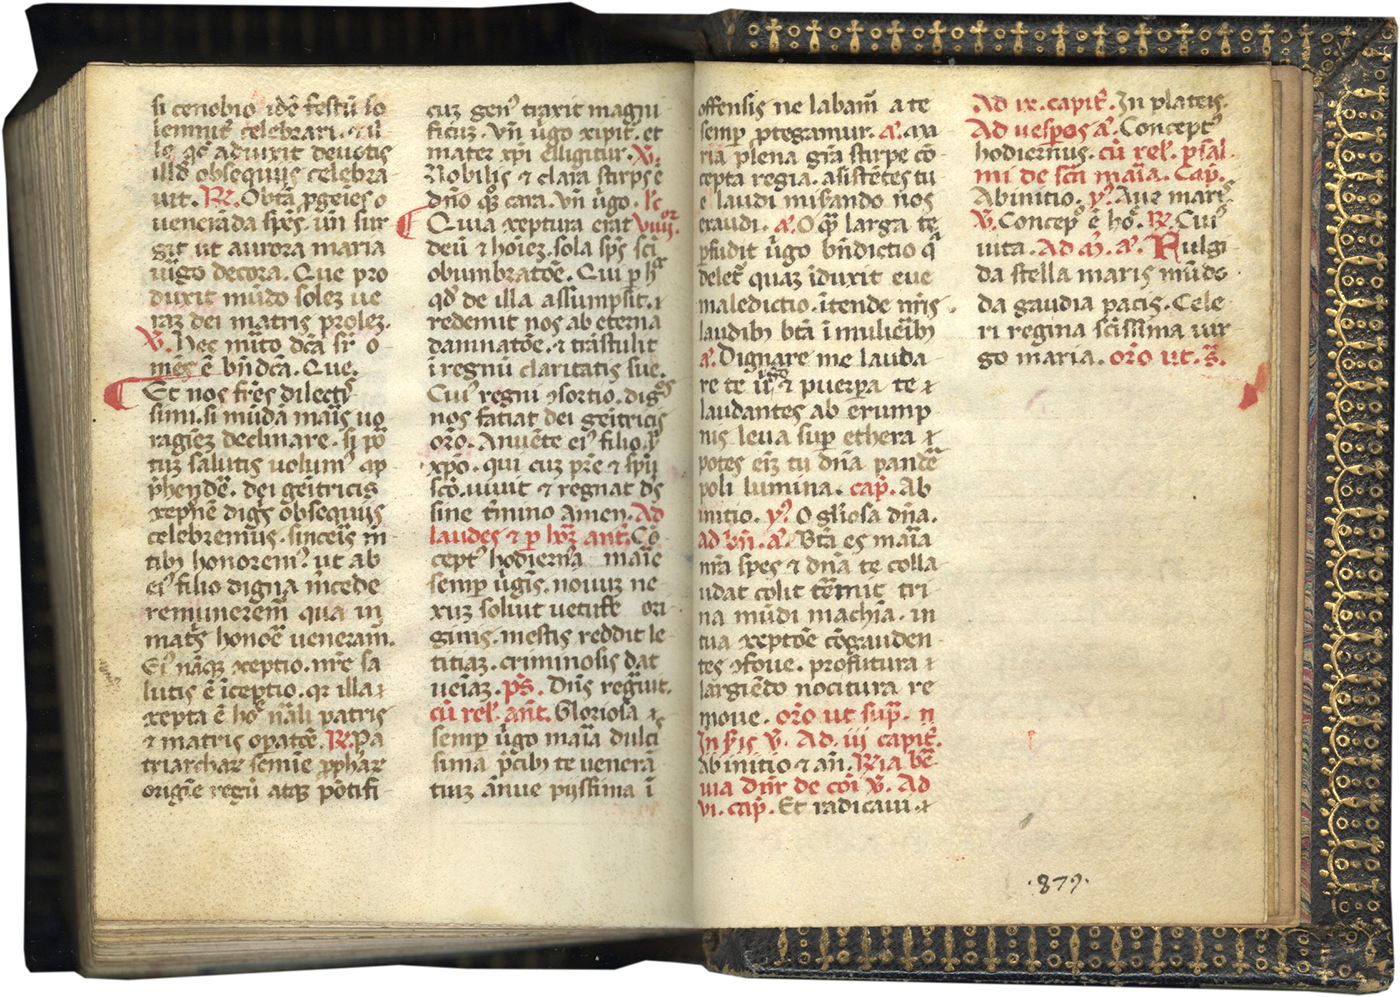 si cenobio idē festū so
lemnit̃ celebrari. ⁊ il
le q̃ adiuxit deuotis
illd̃ obsequiis celebra
uit. R̃. Obtã ꝓgeĩei o
uenerãda sp̃es. ũn sur
git ut aurora maria
uĩgo decora. Que pro
duxit mũdo solez ue
raz dei matris prolez.
Ṽ. Hec mĩto dc̃a sr̃ o
mẽs ẽ bñdc̃a. Que.
Et nos fr̃es dilecti
simi. si mũdã mãis uo
ragiez declinare. si po
tuz salutis uolumꝰ ap
p̃hendẽ. dei geĩtricis
xepñe digĩs obsequiis
celebremus. sinceĩs in
tibꝫ honoremꝰ ut ab
eiꝰ filio digna mcede
remunerem̃ qua in
mat̃s honoẽ ueneram̃.
Eiꝰ nãqꝫ xeptio. nr̃e sa
lutis ẽ ĩceptio. qr illa ⁊
xepta ẽ hõ nãli patris
⁊ matris opatõe. R̃. Pa
triarchaꝝ semĩe ꝓphaꝝ
origĩe regũ atqꝫ põtifi
cuz genꝰ traxit magni
ficuz. Vñ ũgo xipit. et
mater xp̃i elligitur. Ṽ.
Nobilis ⁊ clara stirpe
dño qꝫ cara. Vñ ũgo. lc̃
Quia xeptura erat viiijor.
deũ ⁊ hoĩez. sola sp̃s sc̃i
obumbratõe. Qui p hꝰ
qd̃ de illa assũmpsit. ⁊
redemit nos ab eterna
damnatõe. ⁊ trãstulit
ĩ regnũ claritatis sue.
Cuiꝰ regni ꝯsortio. digõs
nos faciat dei geĩtricis
orõ. Anuẽte eiꝰ filio ip̃
xp̃o. qui cuz pr̃e ⁊ sp̃ũ
scõ. uiuit ⁊ regnat dẽs
sine t̃mino Amen. Ad
laudes ⁊ p hr̃z ant̃. Cõ
ceptꝰ hodiernꝰ maĩe
semꝑ ũgĩs. nouuz ne
xuz soluit uetuste ori
ginis. mestis reddit le
titiaz. criminosis dat
ueĩaz. ps̃. Dñs regñuit.
cũ rel̃. ant̃. Gloriosa ⁊
semꝑ ũgo maĩa dulcis
sima p̃cibꝫ te venerã
tiuz ãnue piissima ĩ
offensis ne labam̃ a te
semꝑ ptegamur. a᷈. ma
ria plena gr̃a stirpe cõ
cepta regia. asistẽtes tu
e laudi miserando nos
exaudi. a᷈. O q̃ larga te
ꝑfudit ũgo bñdictio q̃
delet̃ quaz ĩduxit eue
maledictio. ĩtende nr̃is
laudibꝫ bt̃a ĩ mulieĩbꝫ
a᷈. Dignare me lauda
re te ũgo ⁊ puerꝑa te ⁊
laudantes ab erump
nis leua suꝑ ethera ⁊
potes eĩz tu dñã pandẽ
poli lumina. cap̃. Ab
initio. y᷈. O gl̃iosa dñã.
ad bñ. a᷈. Bt̃a es maĩa
nr̃a sp̃es ⁊ dñã te colla
udat colit tẽrnic tri
na mũdi machĩa. in
tua xeptõe cõgauden
tes ꝯfoue. profutura ⁊
largiẽdo nocitura re
moue. orõ ut sup̃. n
In ꝼis Ṽ. Ad. iii capit̃.
Ab initio ⁊ añ. R̃ia bẽ
uia dñr de cõi Ṽ. Ad
vi. cap̃. Et radicaui. ⁊
Ad ix. capit̃. In plateis.
Ad uesperos a᷈. Conceptꝰ
hodiernus. cũ rel̃. p̃ sal
mi de scĩ maĩa. Cap̃.
Abinitio. y᷈. Aue maris
Ṽ. Concepꝰ ẽ hõ. R̃. Cuiꝰ
uita. Ad m̃. a᷈. Fulgi
da stella maris mũdo
da gaudia pacis. Cele
ri regina scĩssima uir
go maria. orõ ut. s̃.
.879.